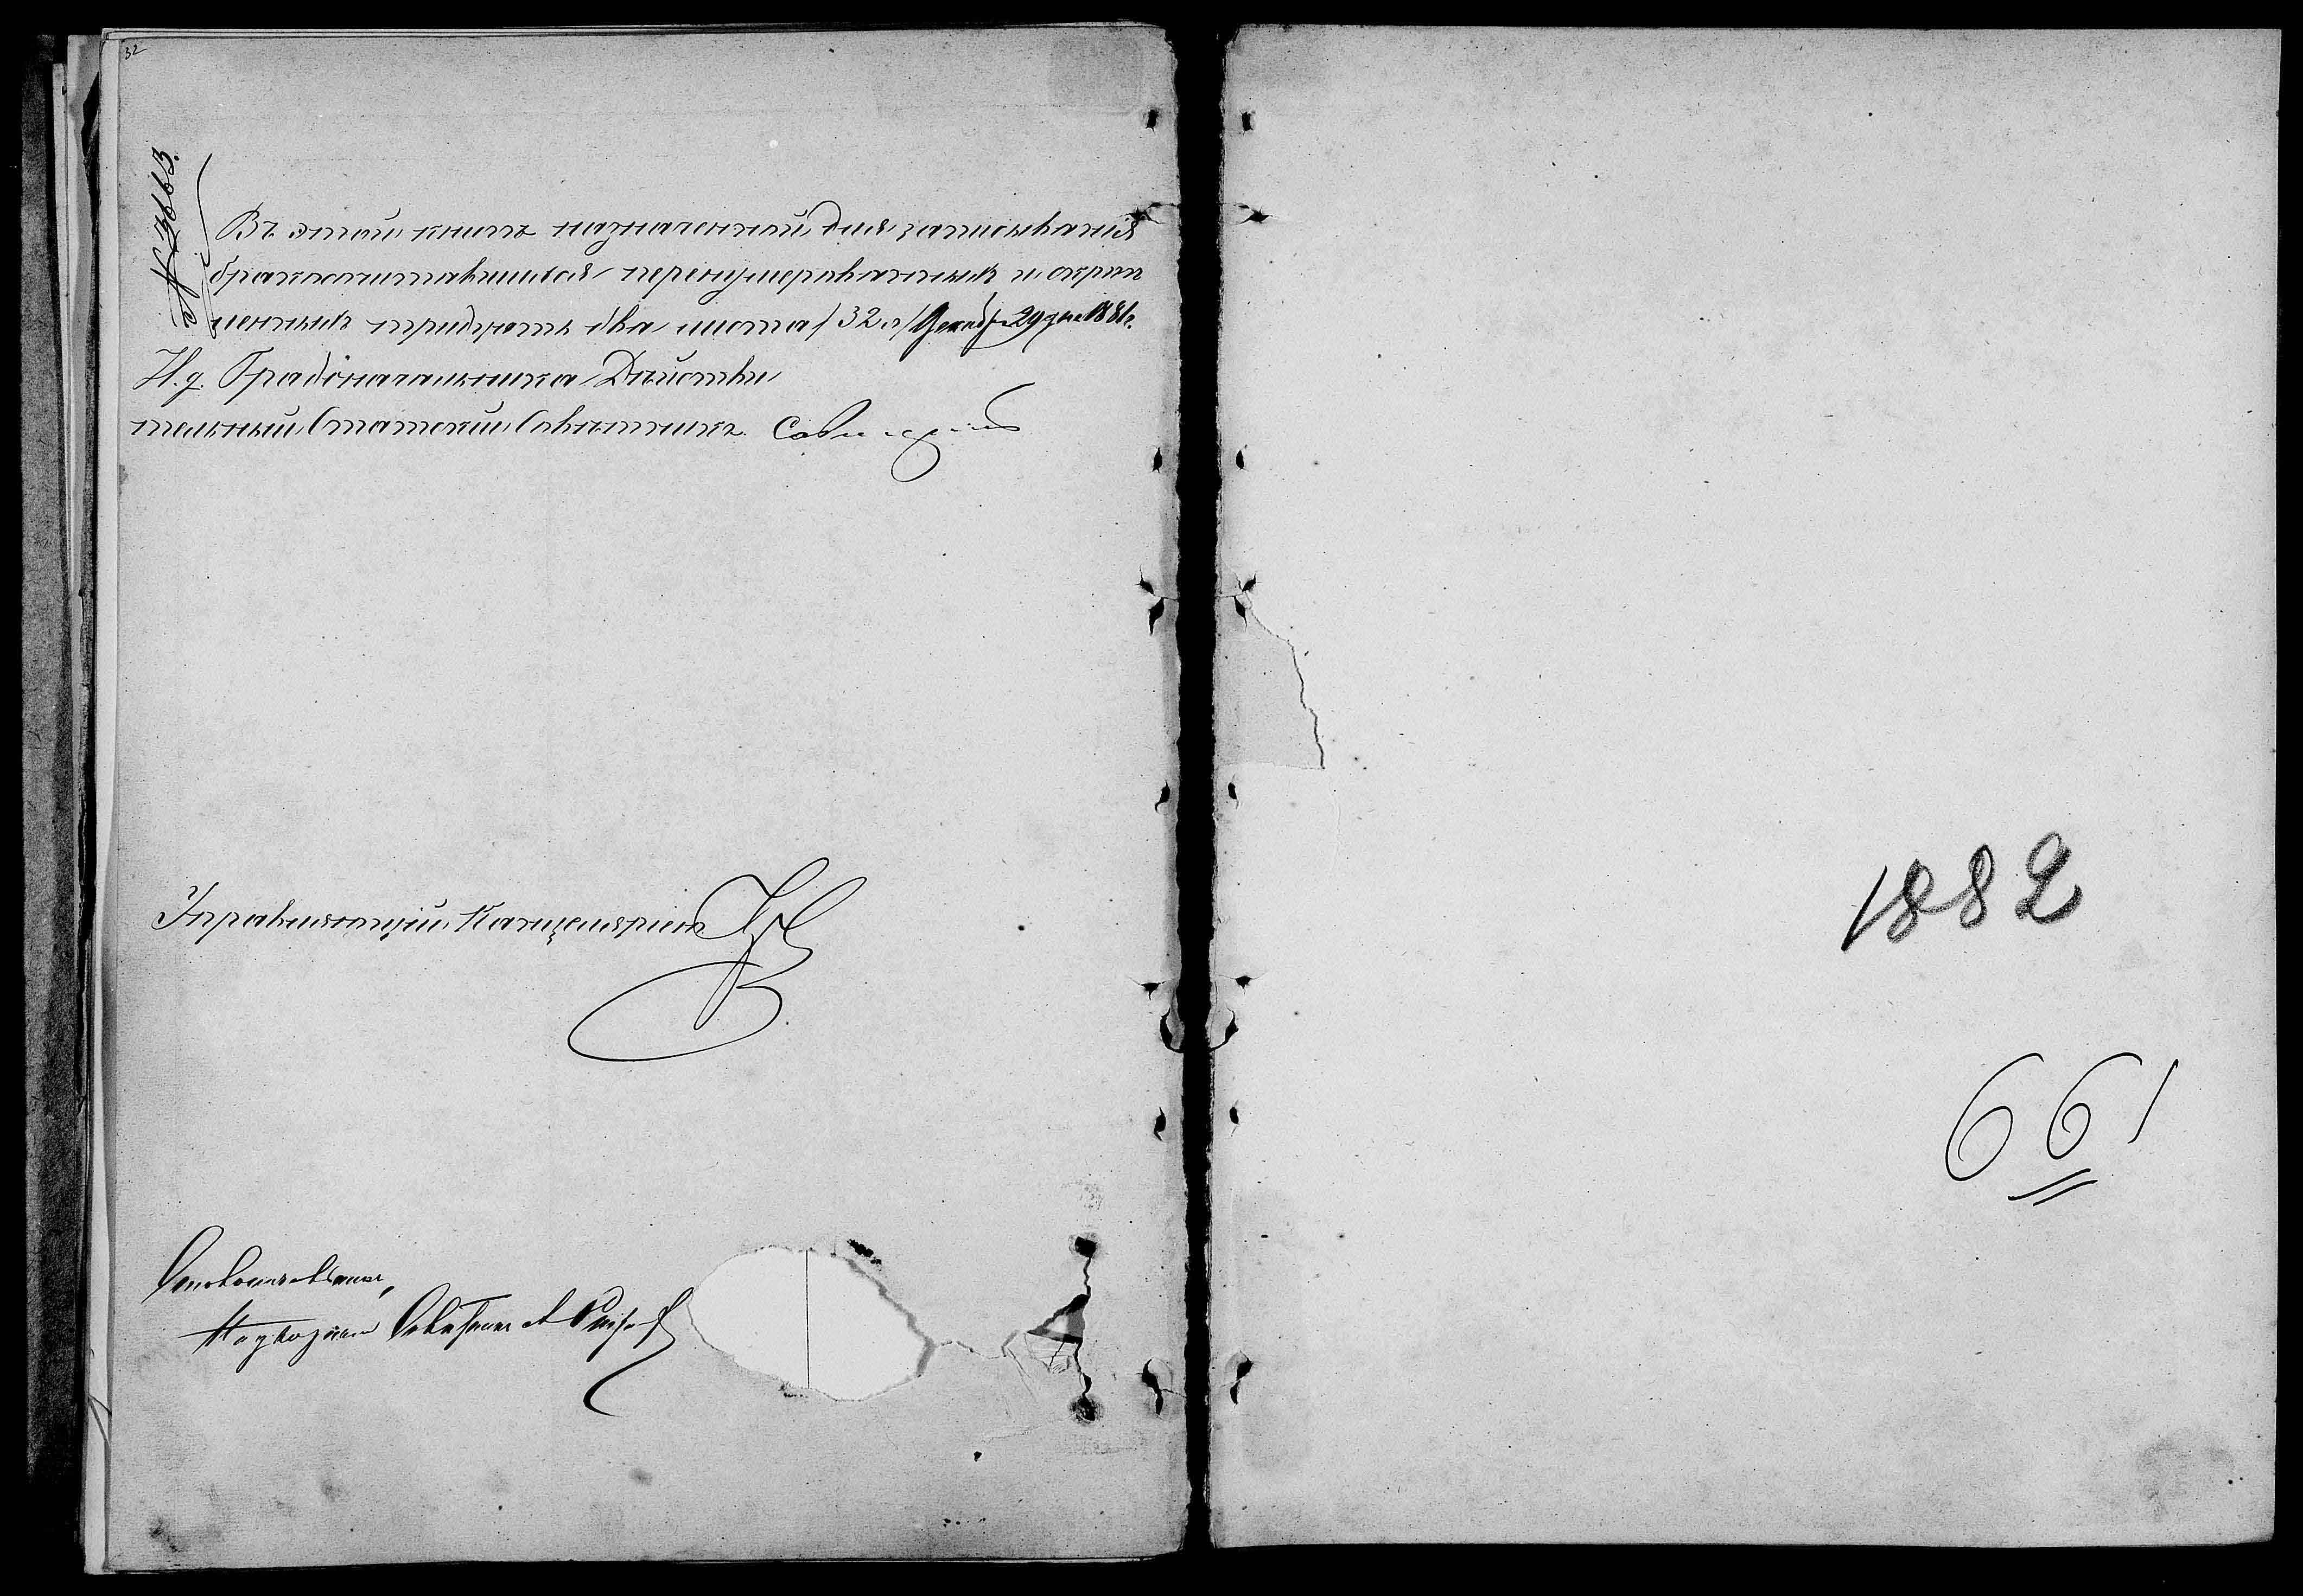 32
№ 7663.
Въ этой книгѣ назначенной для записыванія
бракосочитавшихся перенумерованныхъ и скрѣп
ленныхъ тридцать два листа /32 л/ Декабря 29 дня 1881 г.
И. д. Градоначальника Дѣйстви
тельный Статскій Совѣтникъ
Управляющій Канцеляріею
Столоначальникъ,
Надворный Совѣтникъ
1882
661